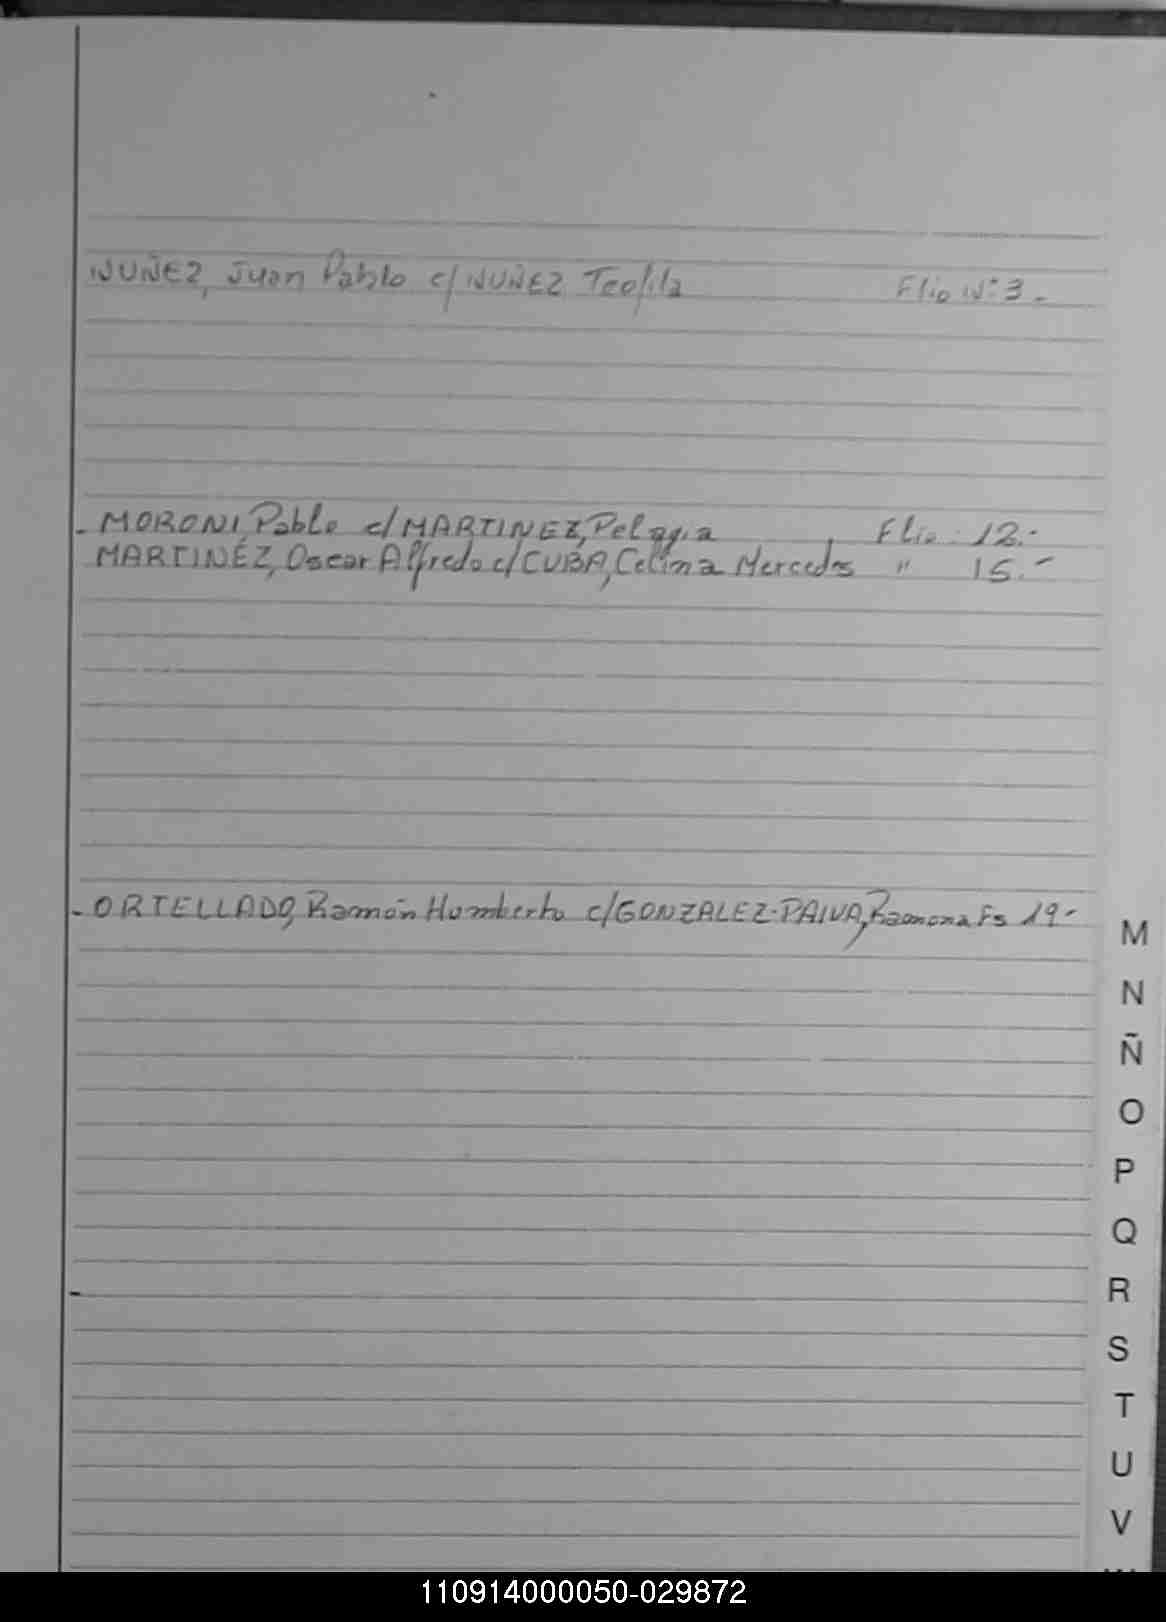 NUÑEZ, Juan Pablo c/ NUÑEZ Teofila Flio Nº 3.-
- MORONI, Pablo c/ MARTINEZ, Pelagia Flio: 12.-
MARTINÉZ, Oscar Alfredo c/ CUBA, Celima Mercedes " 15.-
- ORTELLADO, Ramón Humberto c/ GONZALEZ-PAIVA, Ramona Fs 19-
M
N
Ñ
O
P
Q
R
S
T
U
V
110914000050-029872